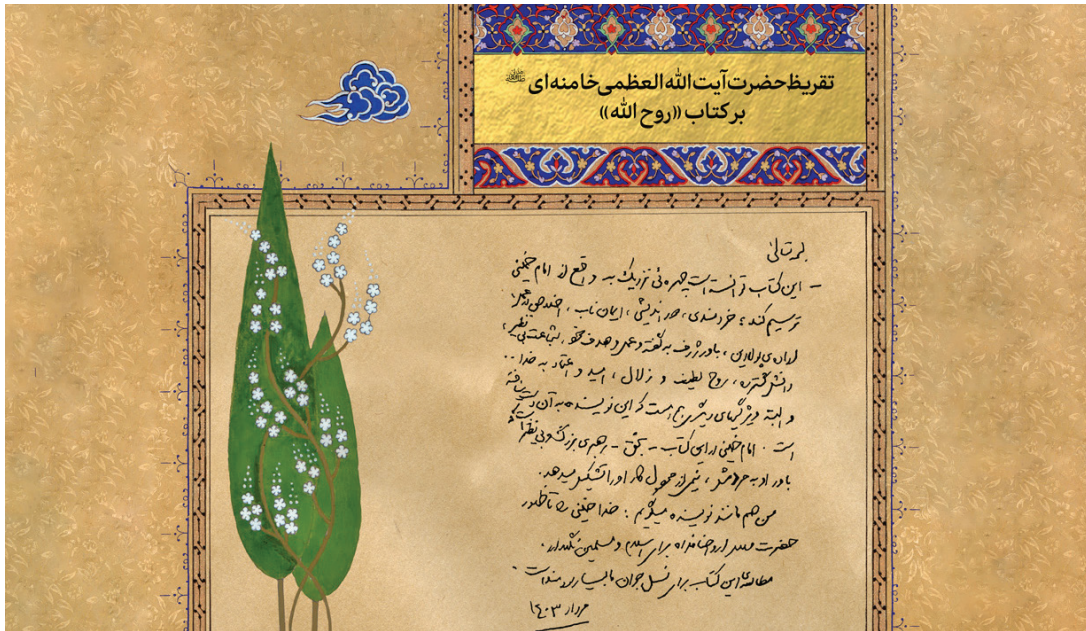 تقریظ حضرت آیت الله العظمی خامنه‌ای
بر کتاب «روح الله»
بسمه تعالیٰ
- این کتاب توانسته است چهره‌ئی نزدیک به واقع از امام خمینی
ترسیم کند؛ خردمندی، دوراندیشی، ایمان ناب، اخلاص در عمل،
اراده‌ی پولادین، باور ژرف به گفته و عمل و هدف خود، شجاعت بی‌نظیر،
دانش گسترده، روح لطیف و زلال، امید و اعتماد به خدا ..
و البته ویژگیهای دیگری هم هست که این نویسنده به آن دست نیافته
است. امام خمینی در این کتاب - بحق - رهبری بزرگ و بی‌نظیر است
باور او به مردمش، نیمی از محصول کار او را تشکیل میدهد.
من هم مانند نویسنده میگویم: خدا خمینی را تا ظهور
حضرت مهدی ارواحنا فداه برای اسلام و مسلمین نگهدارد.
مطالعه‌ی این کتاب برای نسل جوان ما بسیار سودمند است.
مرداد ۱۴۰۳